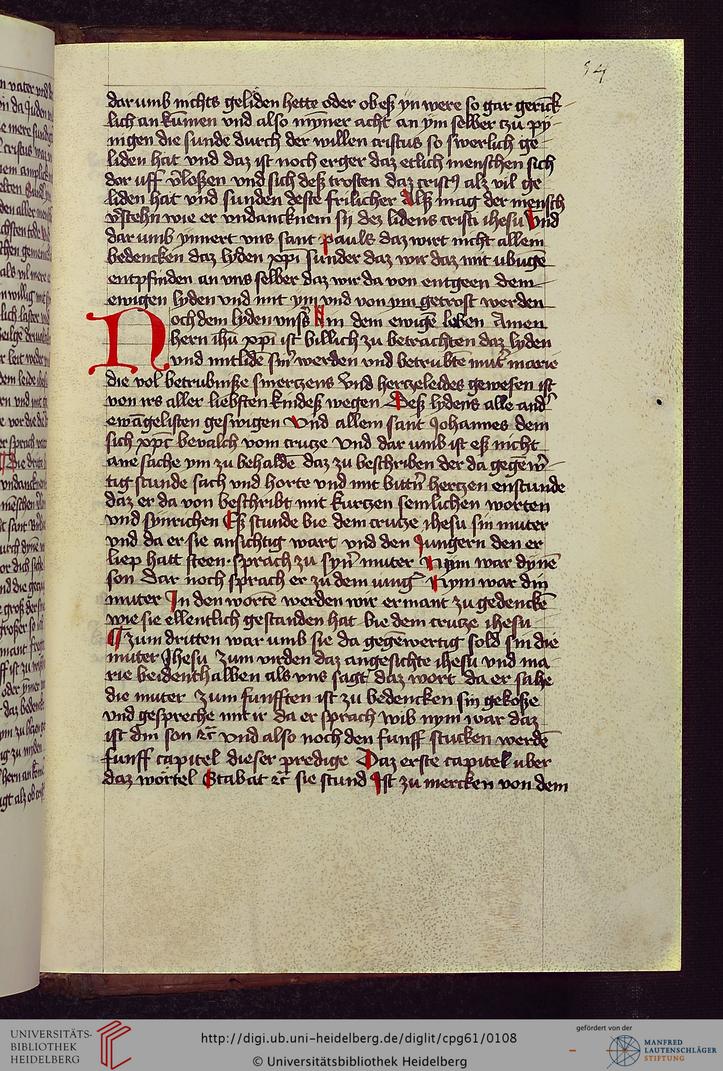 54
dar umb nichts geliden hette oder ob eß yn were so gar gerick
lich an kumen und also myner acht an ym selber czu py
nigen die sunde durch der willen cristus so swerlich ge
liden hat vnd daz ist noch erger daz etlich menschen sich
dar uff v̄loßen vnd sich deß trosten daz crist9 alz vil ge
liden hat vnd sunden deste frilicher Alß mag der mensch
v̄stehn wie er vndancknem sij dez lidens cristi ihesu Vnd
dar umb ynnert vns sant pauls daz wirt nicht allein
bedencken daz lyden xpi sunder daz wir daz mit ubuge
entpfinden an vns selber daz wir da von entgeen dem
ewigen lyden vnd mit ym vnd von ym getrost werden
Noch dem lyden vnßs In dem ewigē leben Amen
hern ihū xpi ist billich zu betrachten daz lyden
vnd mitlide sin werden vnd betrubte mut̄ marie
die vol betrubniße smertzens vnd hertzeleides gewesen ist
von irs aller liebsten kindeß wegen Deß lydens alle and̄
ewāgelisten geswigen Vnd allein sant Johannes dem
sich xpc bevalch vom crutze vnd dar umb ist eß nicht
ane sache ym zu behaldē daz zu beschriben der da gegenw̄
tig stunde sach vnd horte vnd mit bittn̄ hertzen enstunde
daz er da von beschribt mit kurtzen semlichen worten
vnd synrichen Eß stunde bie dem crutze ihesu sin muter
vnd da er sie ansichtig wart vnd den Jungern den er
liep hatt steen sprach zu syn̄ muter Nym war dynē
son Dar noch sprach er zu dem iunḡ Nym war din
muter In den wortē werden wir ermant zu gedenckē
wie sie ellentlich gestanden hat bie dem crutze ihesu
¶ zum dritten war umb sie da gegēwertig sold sin die
muter Jhesu zum virden daz angesichte ihesu vnd ma
rie beidenthalben als vns sagt daz wort da er sahe
die muter zum funfften ist zu bedencken sin gekose
vnd gespreche mit ir da er sprach wib nym war daz
ist din son ꝛc vnd also noch den funff stucken werdē
funff capitel dieser predige Daz erste capitel uber
daz wortel Stabat ꝛc sie stund Ist zu mercken von dem
UNIVERSITÄTS-
BIBLIOTHEK
HEIDELBERG
http://digi.ub.uni-heidelberg.de/diglit/cpg61/0108
© Universitätsbibliothek Heidelberg
gefördert von der
MANFRED
LAUTENSCHLÄGER
STIFTUNG